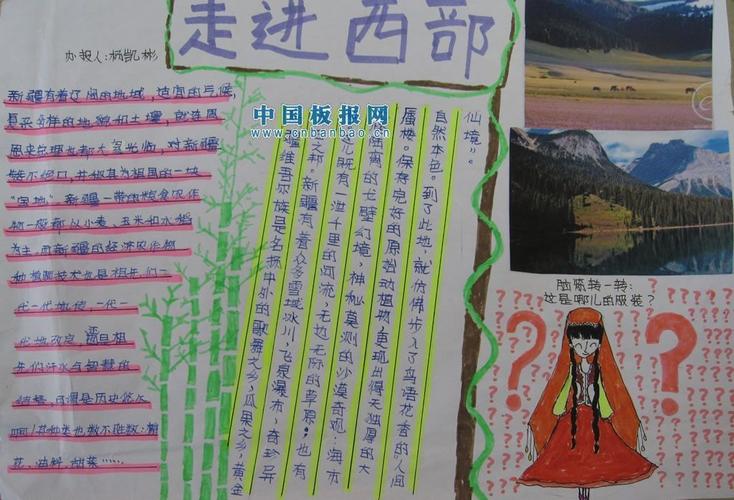 走进西部
办报人:杨凯彬
新疆有着辽阔的地域,适宜的气候,
复杂多样的地貌和土壤,就连周
恩来总理都大驾光临,对新疆
赞不绝口,并称其为祖国的一块
"宝地"。新疆一带的粮食农作
物一般都以小麦、玉米和水稻
为主,而新疆的经济农作物
种植技术也是祖先们一
代一代地传,一代一
代地改,而且祖
先们汗水与智慧的
结晶,可谓是历史悠久
啊!其种类也数不胜数:棉
花、油料、甜菜……
中国板报网
www.cnbanbao.cn
疆维吾尔族是名扬中外的歌舞之乡,瓜果之乡,黄金
之邦。新疆有着众多雪域冰川,飞泉瀑布,奇珍异
儿既有一泄千里的河流,无边无际的草原;也有
的戈壁幻境,神秘莫测的沙漠奇观:海市
蜃楼。保存完好的原始动植物,更现出得天独厚的大
自然本色。到了此地,就仿佛步入了鸟语花香的"人间
仙境"。
脑筋转一转:
这是哪儿的服装?